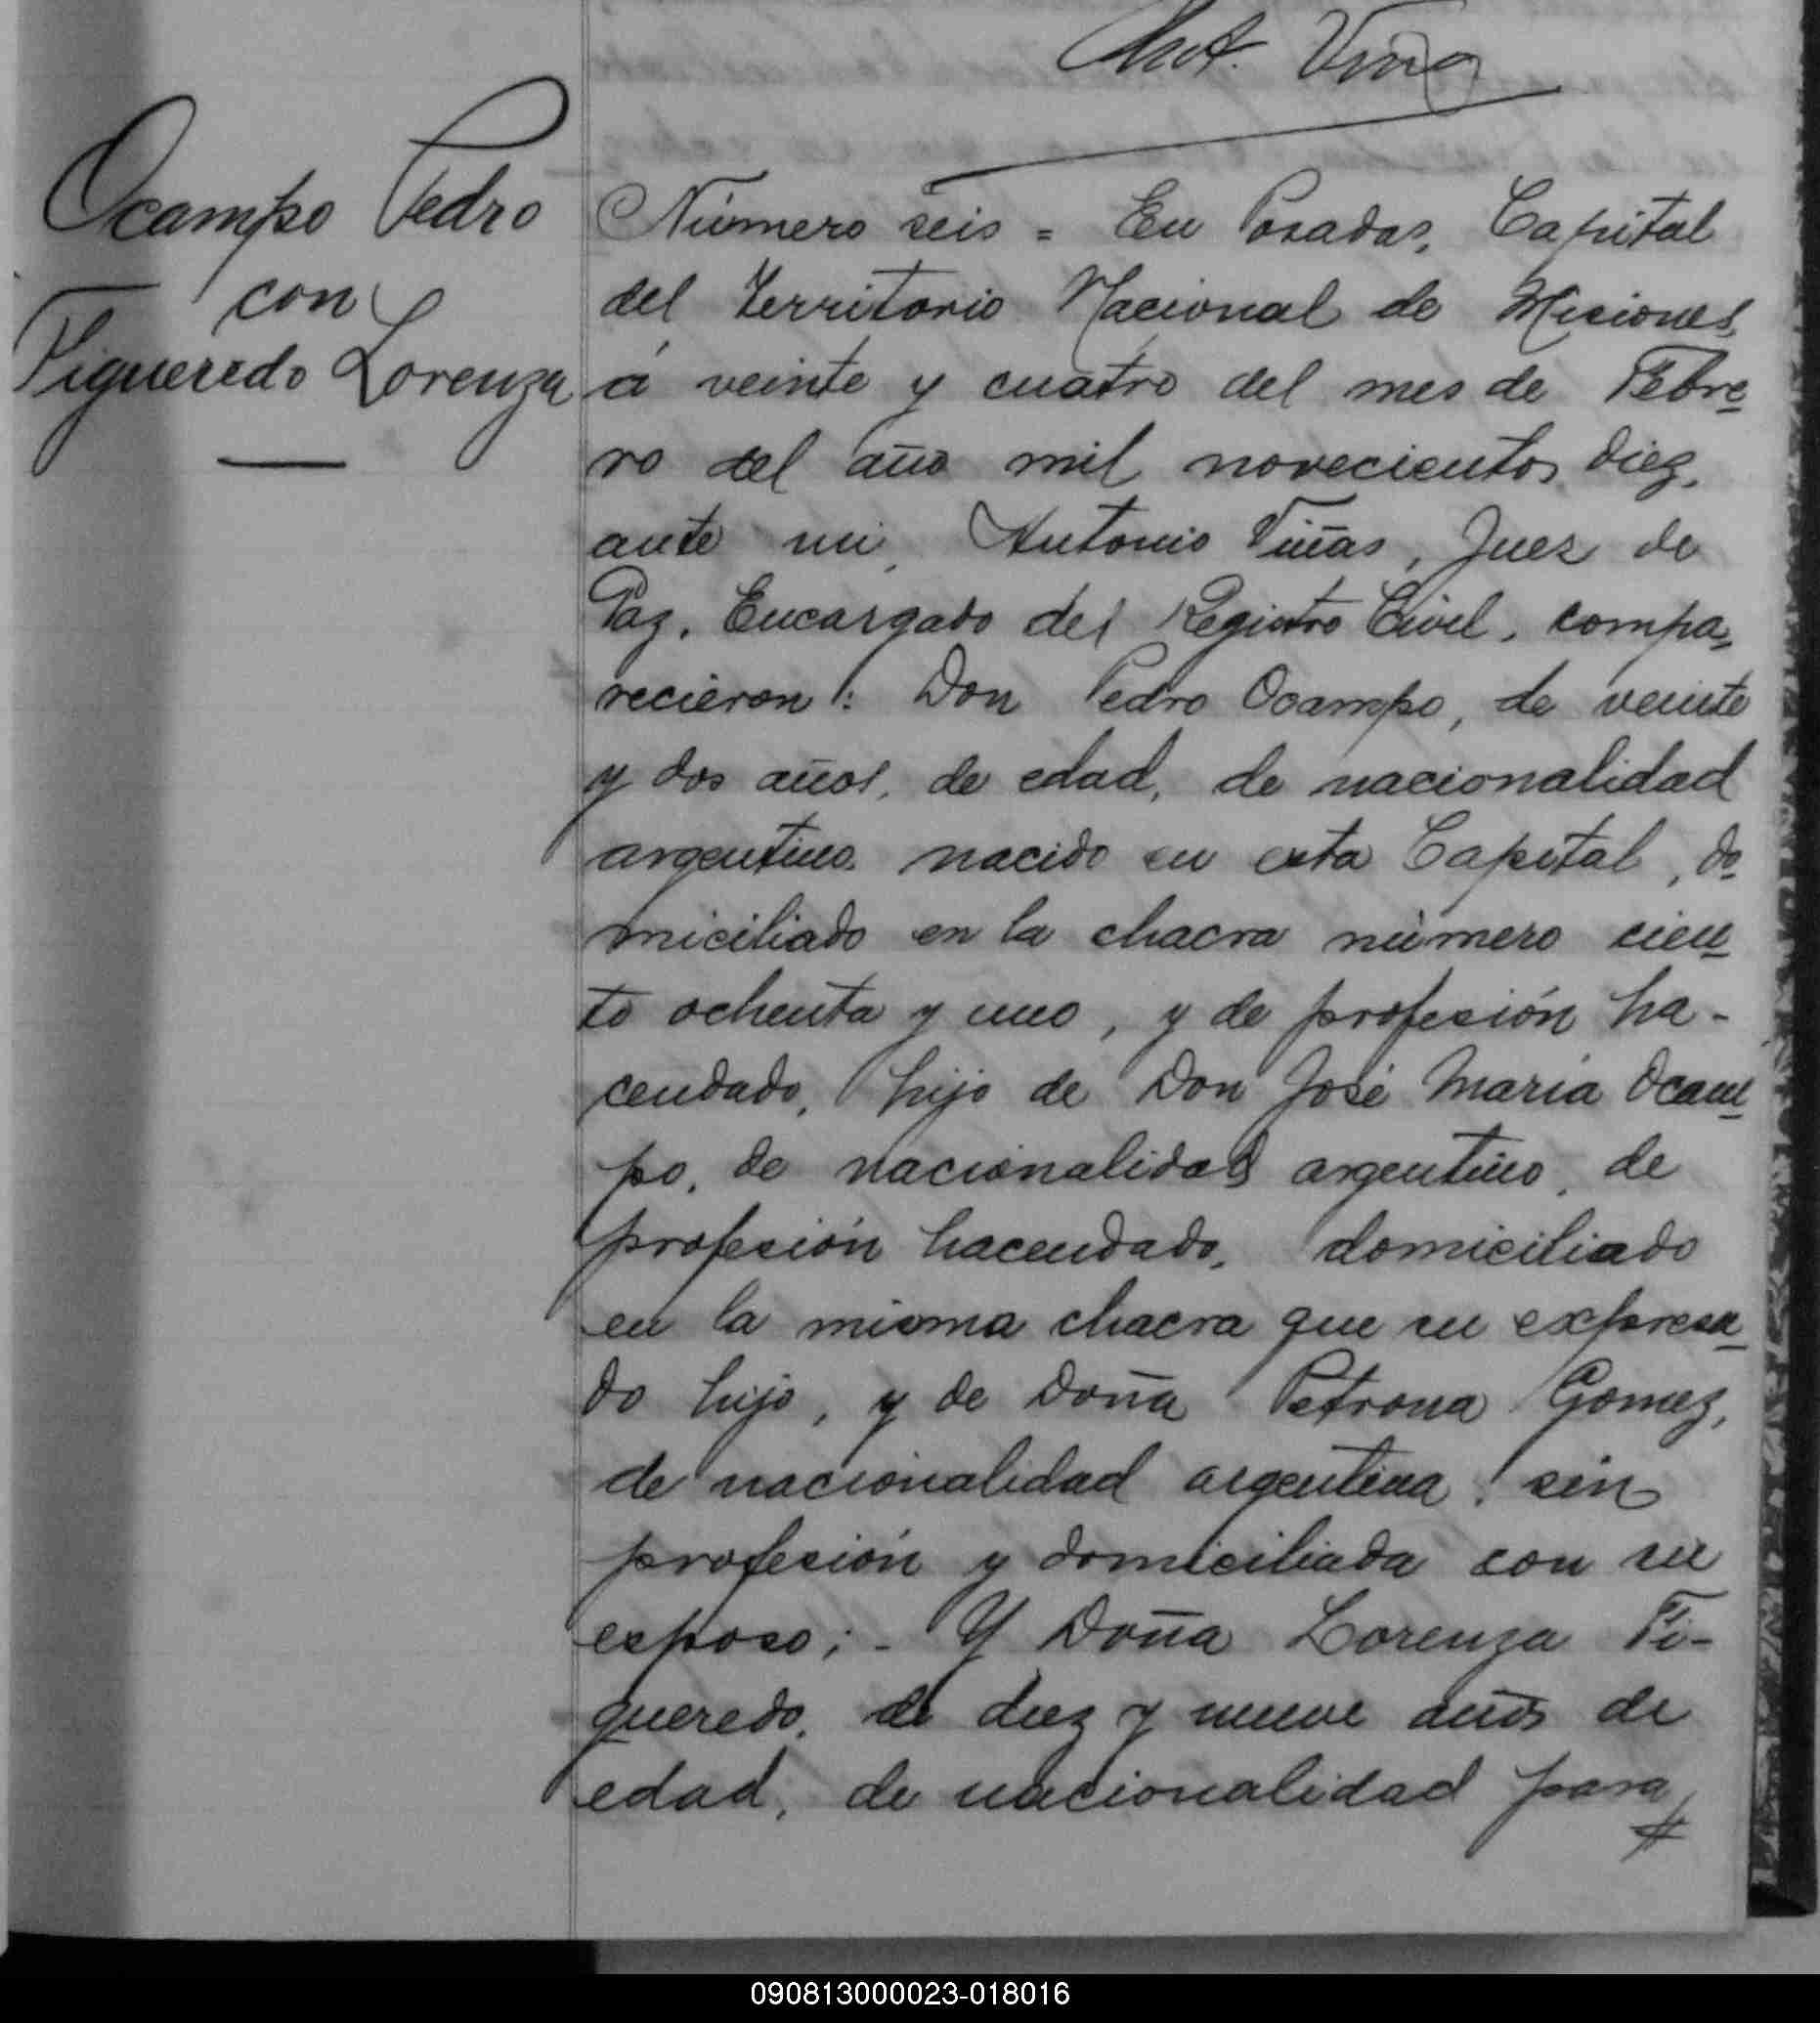 Ant. Viña
Ocampo Pedro
con
Figueredo Lorenza
Número seis = En Posadas, Capital
del Territorio Nacional de Misiones
á veinte y cuatro del mes de Febre
ro del año mil novecientos diez,
ante mi, Antonio Viñas, Juez de
Paz, Encargado del Registro Civil, compa
recieron: Don Pedro Ocampo, de veinte
y dos años, de edad, de nacionalidad
argentino, nacido en esta Capital, do
miciliado en la chacra número cien
to ochenta y uno, y de profesión ha-
cendado, hijo de Don José María Ocam
po, de nacionalidad argentino, de
profesión hacendado, domiciliado
en la misma chacra que su expresa
do hijo, y de Doña Petrona Gomez,
de nacionalidad argentina, sin
profesión y domiciliada con su
esposo; - Y Doña Lorenza Fi-
gueredo, de diez y nueve años de
edad, de nacionalidad para
090813000023-018016